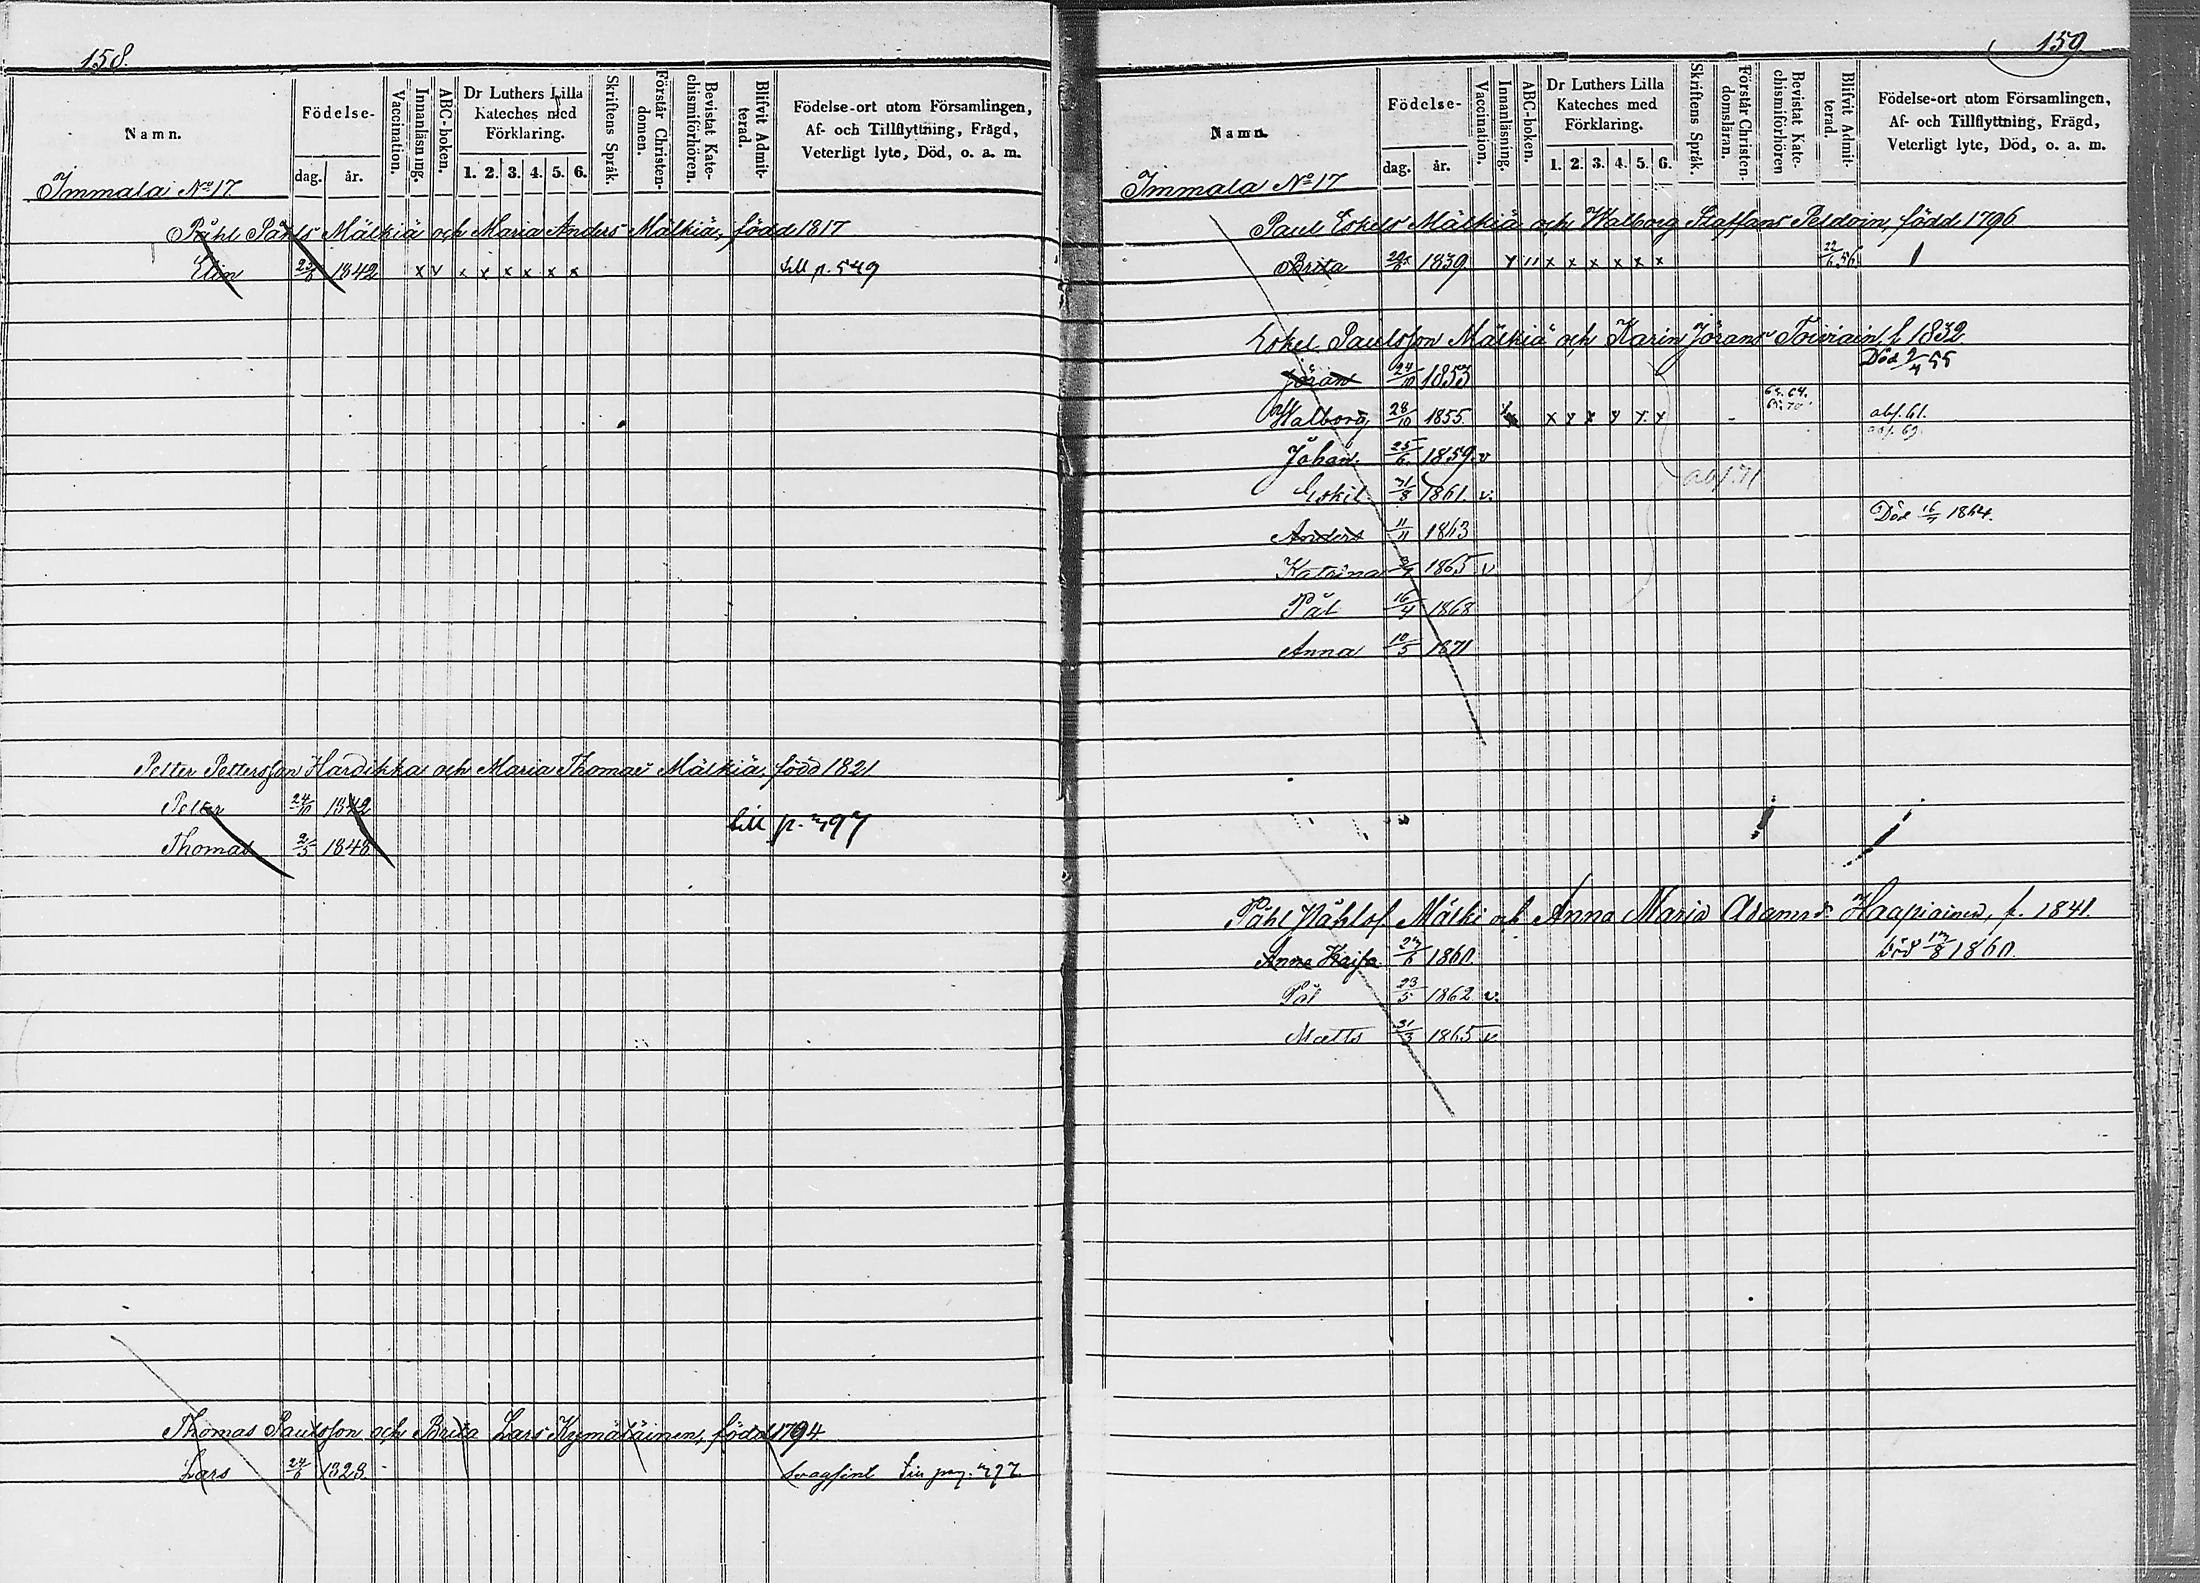 158.
Namn.
Födelse-
dag. år.
Vaccination.
Innanläsning.
ABC-boken.
Dr Luthers Lilla
Kateches med
Förklaring.
1. 2. 3. 4. 5. 6.
Skriftens Språk.
Förstår Christen-
domen.
Bevistat Kate-
chismiförhören.
Blifvit Admit-
terad.
Födelse-ort utom Församlingen,
Af- och Tillflyttning, Frägd,
Veterligt lyte, Död, o. a. m.
Immala No 17
Påhl Påhls Mälkiä och Maria Anders Mälkiä, född 1817
Elin 23/6 1842 x v x x x x x x till p. 549
Petter Pettersson Hardikka och Maria Thomae Mälkiä, född 1821
Petter 24/10 1842
till p. 797
Thomas 2/5 1848
Thomas Paulsson och Brita Lars Kymäläinen, född 1794
Lars 24/6 1823. svagsint Till pag. 797.
159
Namn.
Födelse-
dag. år.
Vaccination.
Innanläsning.
ABC-boken.
Dr Luthers Lilla
Kateches med
Förklaring.
1. 2. 3. 4. 5. 6.
Skriftens Språk.
Förstår Christen-
domsläran.
Bevistat Kate-
chismiförhören
Blifvit Admit-
terad.
Födelse-ort utom Församlingen,
Af- och Tillflyttning, Frägd,
Veterligt lyte, Död, o. a. m.
Immala No 17
Paul Eskels Mälkiä och Walborg Staffans Peldoin, född 1796
Brita 1839. x x x x x x 22/6 56.
Eskel Paulsson Mälkiä och Karin Jörans Toiviain, f. 1832
Jöran 24/10 1853 Död 9/4 55
Walborg 28/10 1855. x x x x x x 63. 64. abs. 61.
abs. 69.
Johan 25/6 1859. v
Eskil 31/8 1861 v. abs. 71
Anders 11/11 1863 Död 16/7 1864.
Katrina 1865 v
Pål 16/4 1868
Anna 10/5 1871
Påhl Påhlss. Mälki och Anna Maria Haapiainen, f. 1841.
Anna Kaisa 27/6 1860. död 17/8 1860.
Pål 23/5 1862 v.
Matts 31/3 1865 v